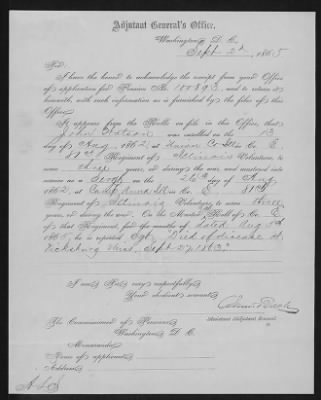 Adjutant General's Office,
Washington, D. C.
Sept 2d, 1865
Sir:
I have the honor to acknowledge the receipt from your Office
of application for Pension No. 100893, and to return it
herewith, with such information as is furnished by the files of this
Office.
It appears from the Rolls on file in this Office, that
John Watson was enrolled on the 13
day of Aug, 1862, at Co. E,
81st Regiment of Illinois Volunteers, to
serve three years, or during the war, and mustered into
service as a on the 26th day of Aug,
1862, at Camp Anna Ills in Co. E 81st
Regiment of Illinois Volunteers, to serve three
years, or during the war. On the Muster Roll of Co. E
of that Regiment, for the months of dated Aug 5th
1865, he is reported Sgt. "Died of disease at
Vicksburg Miss, Sept 1863"
I am, Sir, very respectfully,
Your obedient servant,
Assistant Adjutant General.
The Commissioner of Pensions,
Washington, D. C.
Memoranda:
Name of applicant,
Address,